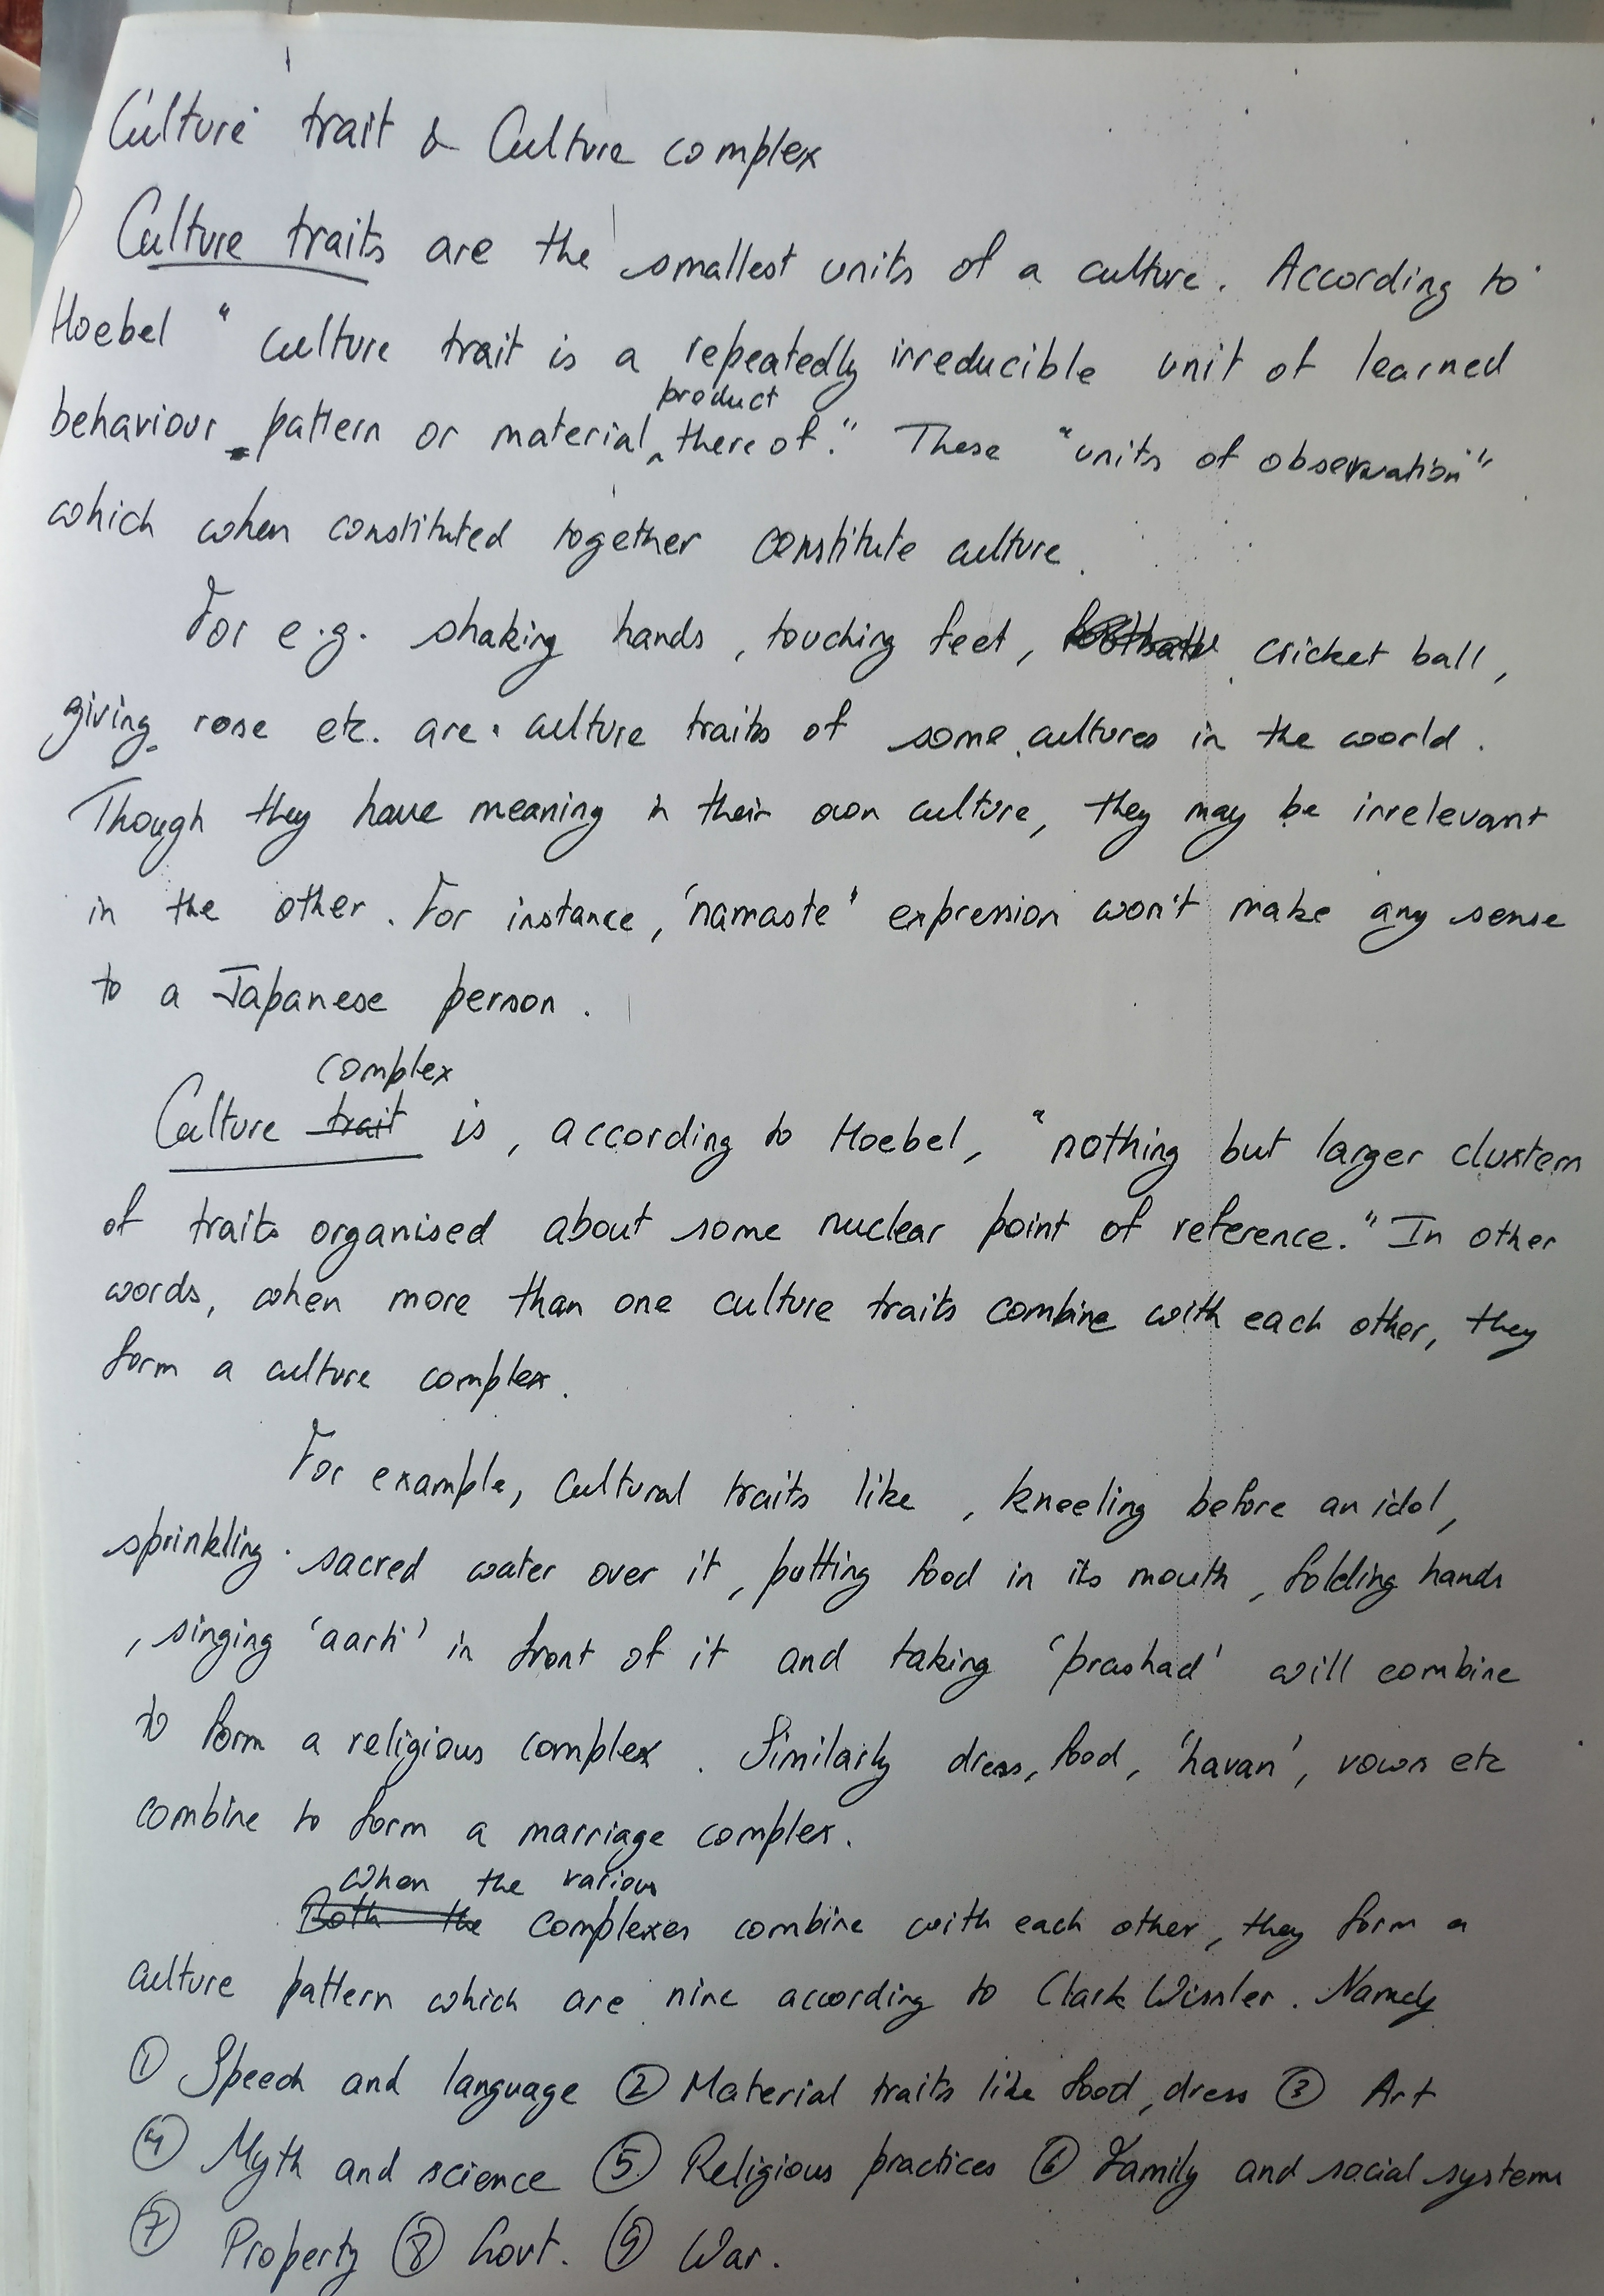 Culture trait & Culture complex
Culture traits are the smallest units of a culture. According to
Hoebel " culture trait is a repeatedly irreducible unit of learned
behaviour pattern or material product thereof." These "units of observation"
which when constituted together constitute culture.
For e.g. shaking hands, touching feet, cricket ball,
giving rose etc. are culture traits of some cultures in the world.
Though they have meaning in their own culture, they may be irrelevant
in the other. For instance, 'namaste' expression won't make any sense
to a Japanese person.
complex
Culture trait is, according to Hoebel, "nothing but larger clusters
of traits organised about some nuclear point of reference." In other
words, when more than one culture traits combine with each other, they
form a culture complex.
For example, cultural traits like, kneeling before an idol,
sprinkling sacred water over it, putting food in its mouth, folding hands
, singing 'aarti' in front of it and taking 'prashad' will combine
to form a religious complex. Similarly dress, food, 'havan', vows etc
combine to form a marriage complex.
When the various
Both the complexes combine with each other, they form a
culture pattern which are nine according to Clark Wissler. Namely
① Speech and language ② Material traits like food, dress ③ Art
④ Myth and science ⑤ Religious practices ⑥ Family and social systems
⑦ Property ⑧ Govt. ⑨ War.